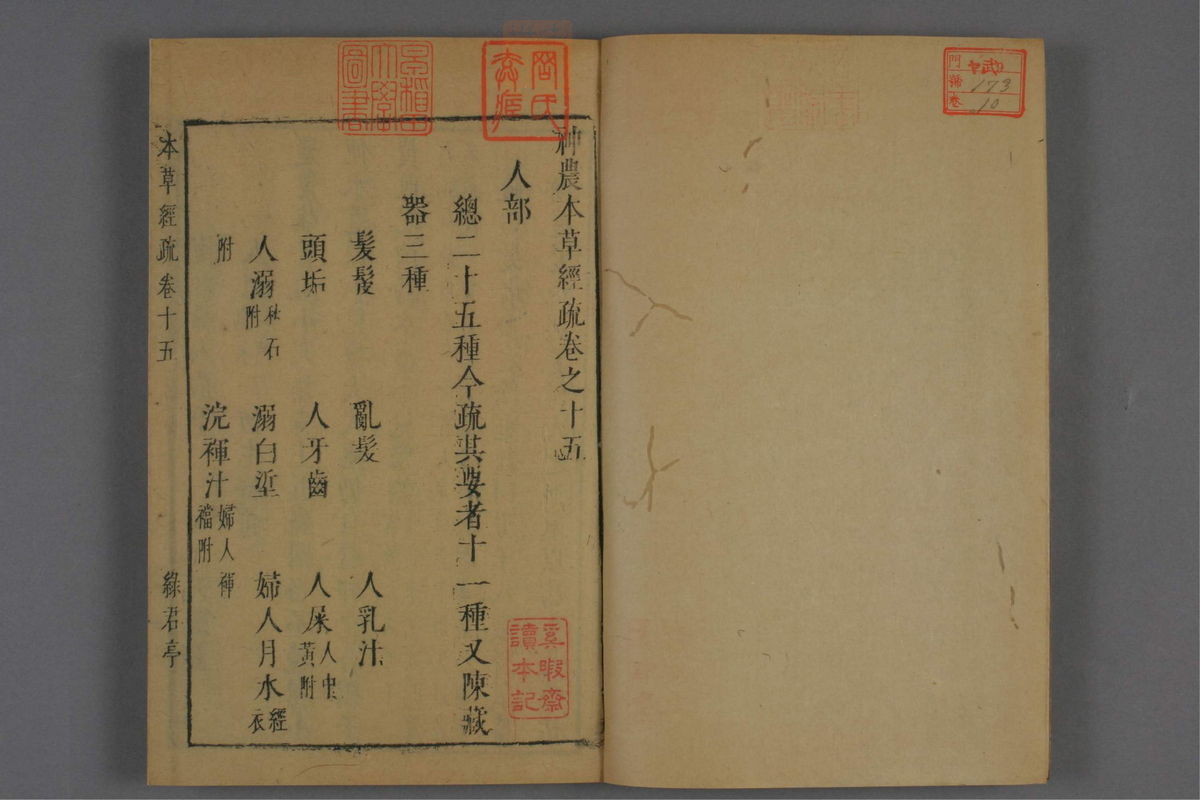 門 號 卷
173
10
神農本草經疏卷之十五
人部
總二十五種今疏其要者十一種又陳藏
器三種
髮髲 亂髮 人乳汁
頭垢 人牙齒 人屎人中黃附
人溺秋石附 溺白垽 婦人月水經衣
附 浣褌汁婦人褌襠附
本草經疏卷十五 綠君亭
奚暇齋讀本記